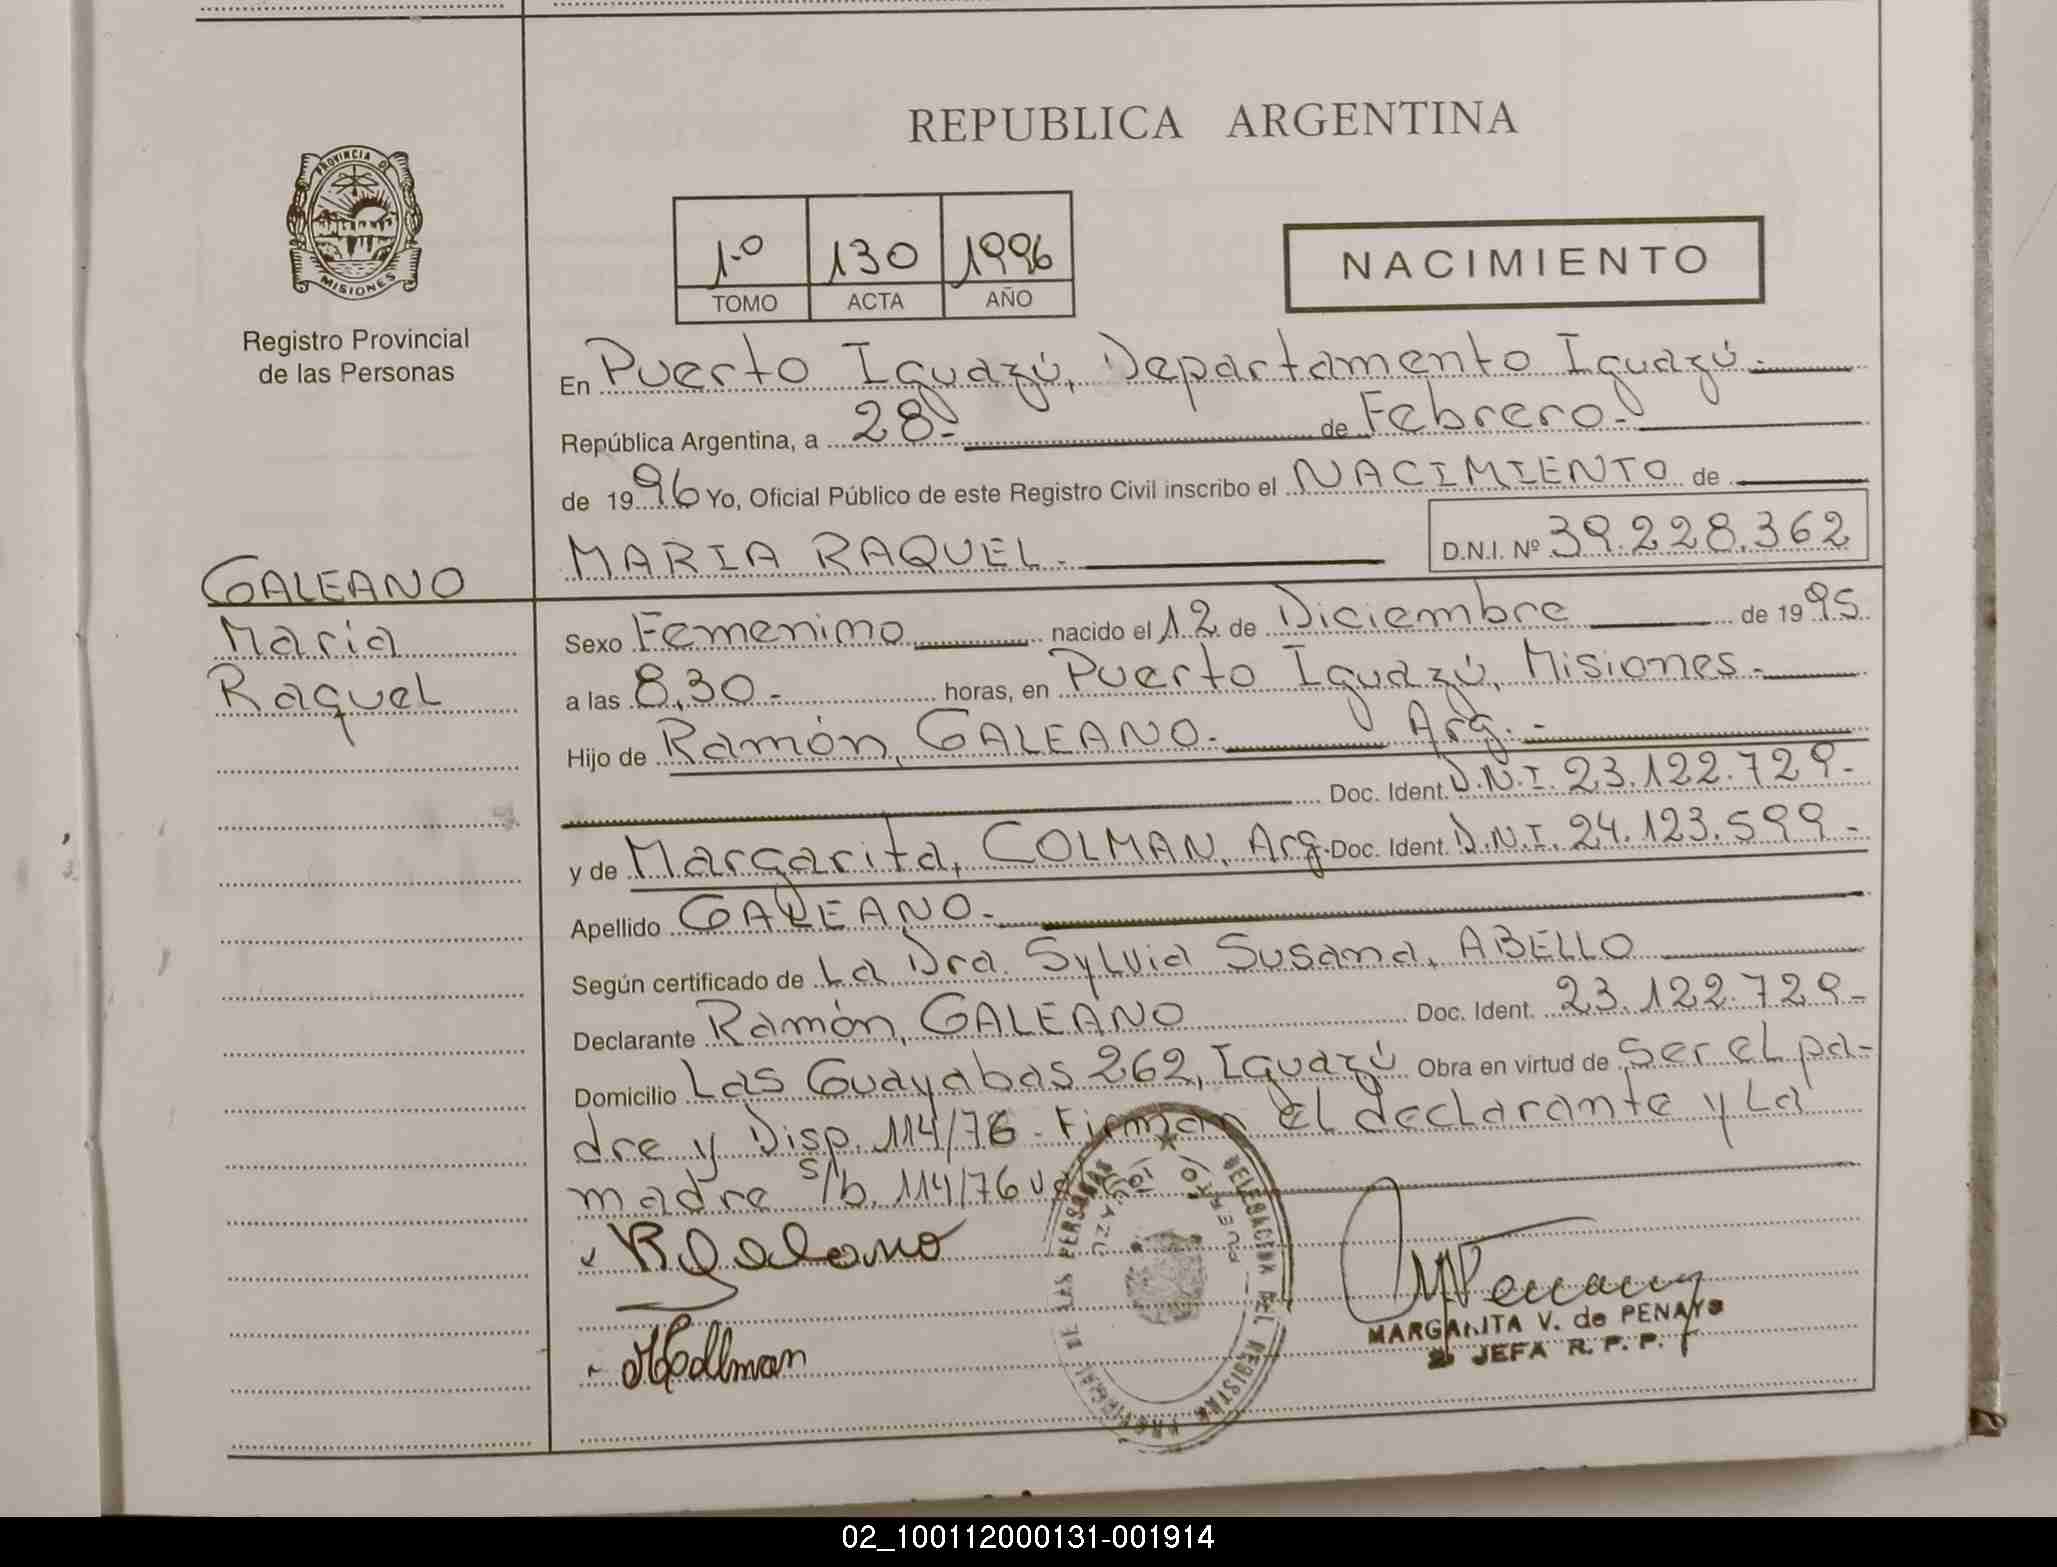 REPUBLICA ARGENTINA
PROVINCIA D
MISIONES
Registro Provincial
de las Personas
1.º 130 1996
TOMO ACTA AÑO
NACIMIENTO
En Puerto Iguazú, Departamento Iguazú.-
República Argentina, a 28.- de Febrero.-
de 1996 Yo, Oficial Público de este Registro Civil inscribo el NACIMIENTO de
MARIA RAQUEL.- D.N.I. Nº 39.228.362
GALEANO
Maria
Raquel
Sexo Femenino nacido el 12 de Diciembre de 1995.
a las 8,30.- horas, en Puerto Iguazú, Misiones.-
Hijo de Ramón, GALEANO.- Arg.-
Doc. Ident. D.N.I. 23.122.729.-
y de Margarita, COLMAN, Arg. Doc. Ident. D.N.I. 24.123.599.-
Apellido GALEANO.-
Según certificado de La Dra. Sylvia Susana, ABELLO
Declarante Ramón, GALEANO Doc. Ident. 23.122.729.-
Domicilio Las Guayabas 262, Iguazú Obra en virtud de Ser el pa-
dre y Disp. 114/76.- Firman el declarante y La
madre s/b. 114/76 vd
RGaleano
MCollman
DELEGACION DEL REGISTRO PROVINCIAL DE LAS PERSONAS
PUERTO IGUAZU
MARGARITA V. de PENAYO
2º JEFA R. P. P.
02_100112000131-001914